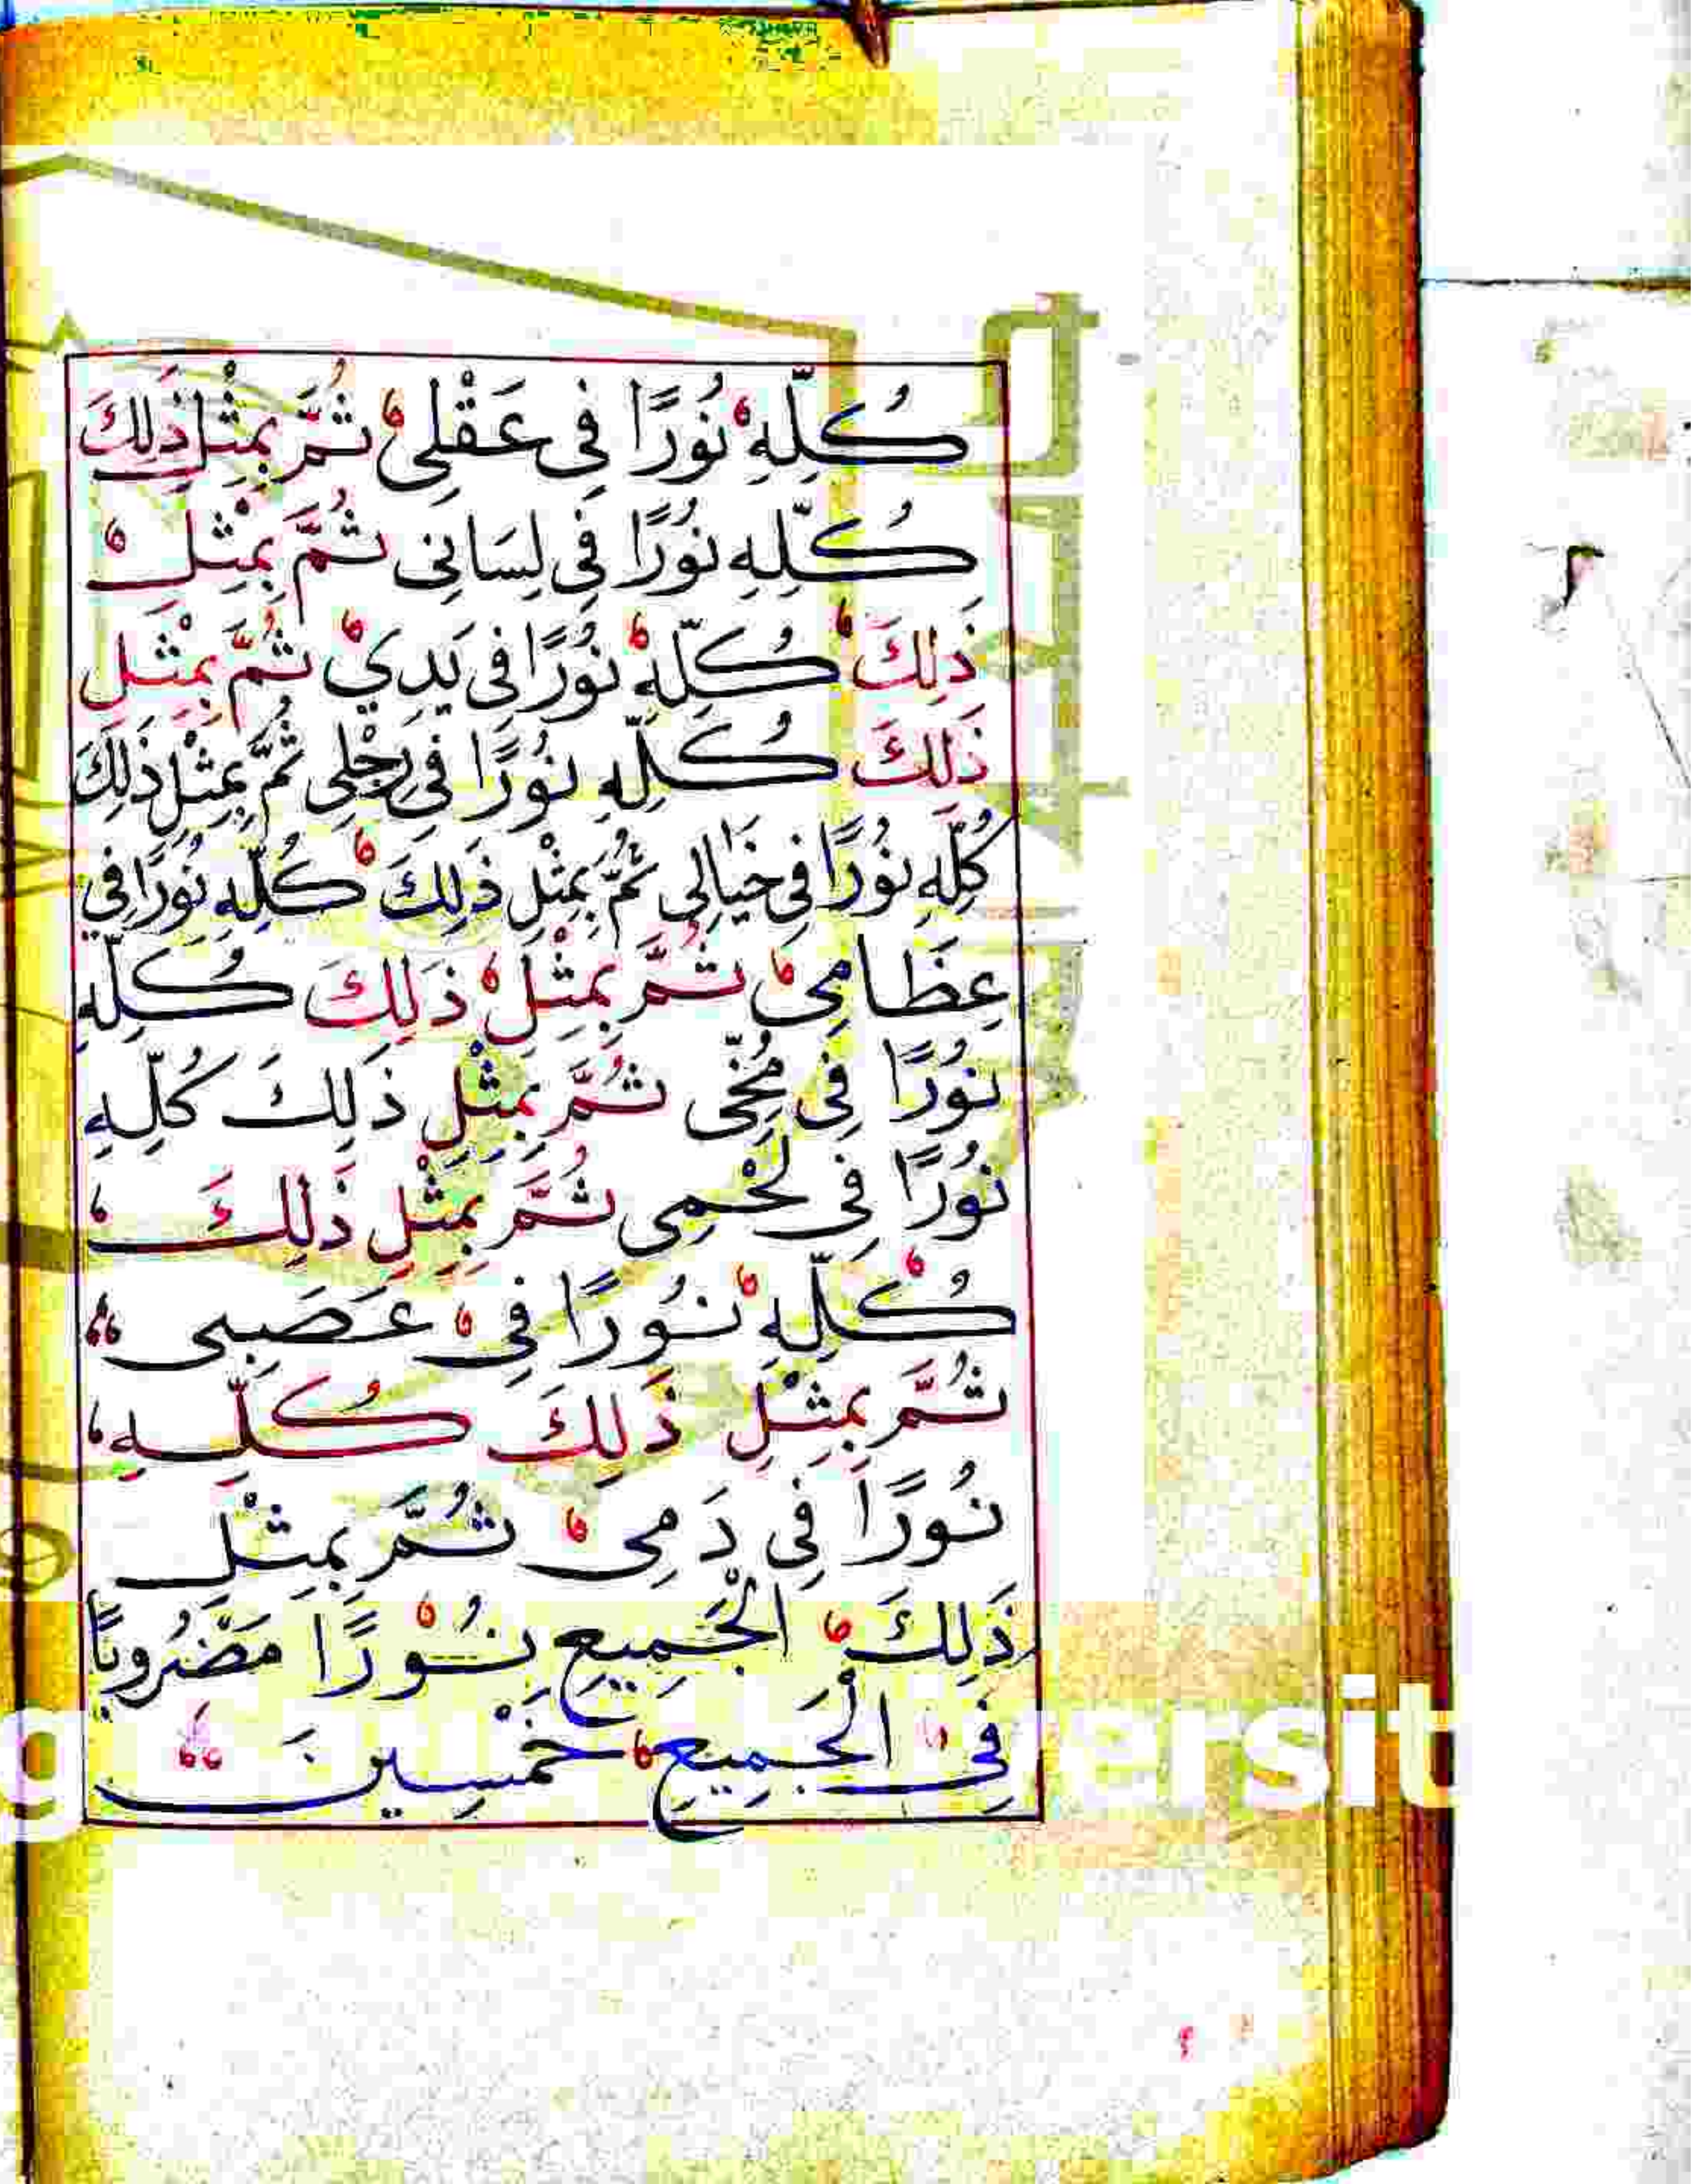 كُلِّهِ نُورًا فِى عَقْلِى ثُمَّ بِمِثْلِ ذَلِكَ
كُلِّهِ نُورًا فِى لِسَانِى ثُمَّ بِمِثْلِ
ذَلِكَ كُلِّهِ نُورًا فِى يَدِي ثُمَّ بِمِثْلِ
ذَلِكَ كُلِّهِ نُورًا فِى رِجْلِى ثُمَّ بِمِثْلِ ذَلِكَ
كُلِّهِ نُورًا فِى خَيَالِى ثُمَّ بِمِثْلِ ذَلِكَ كُلِّهِ نُورًا فِي
عِظَامِى ثُمَّ بِمِثْلِ ذَلِكَ كُلِّهِ
نُورًا فِى مُخِّى ثُمَّ بِمِثْلِ ذَلِكَ كُلِّهِ
نُورًا فِى لَحْمِى ثُمَّ بِمِثْلِ ذَلِكَ
كُلِّهِ نُورًا فِى عَصَبِى
ثُمَّ بِمِثْلِ ذَلِكَ كُلِّهِ
نُورًا فِى دَمِى ثُمَّ بِمِثْلِ
ذَلِكَ الْجَمِيعِ نُورًا مَضْرُوبًا
فِى الْجَمِيعِ خَمْسِينَ